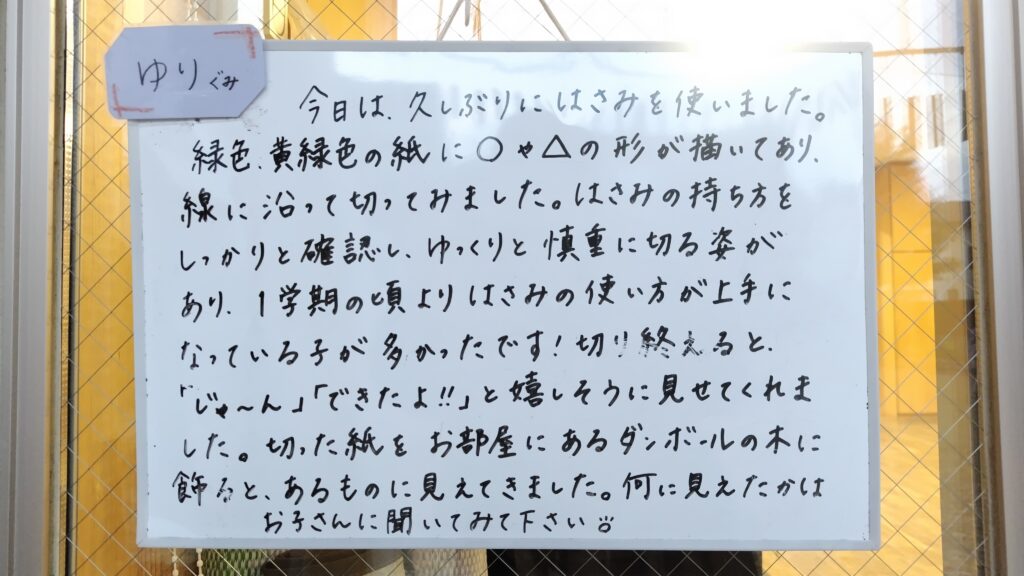 ゆりぐみ
今日は、久しぶりにはさみを使いました。
緑色、黄緑色の紙に○や△の形が描いてあり、
線に沿って切ってみました。はさみの持ち方を
しっかりと確認し、ゆっくりと慎重に切る姿が
あり、1学期の頃よりはさみの使い方が上手に
なっている子が多かったです!切り終えると、
「じゃ〜ん」「できたよ!!」と嬉しそうに見せてくれま
した。切った紙をお部屋にあるダンボールの木に
飾ると、あるものに見えてきました。何に見えたかは
お子さんに聞いてみて下さい